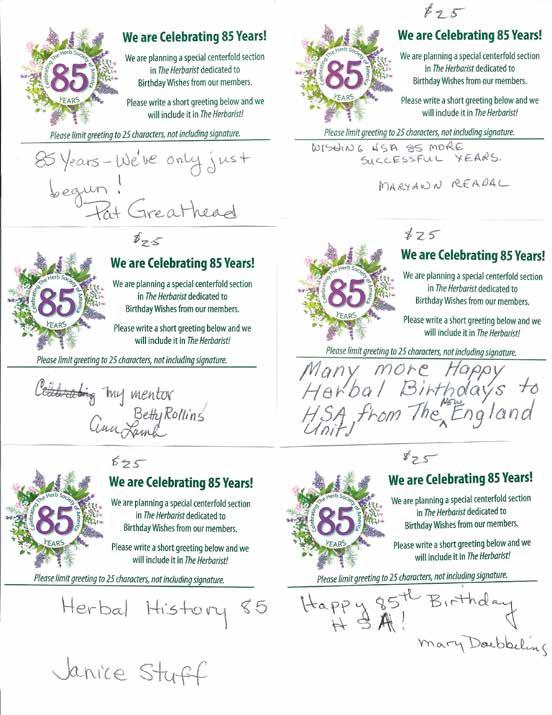 We are Celebrating 85 Years!
Celebrating The Herb Society of America
85
YEARS
We are planning a special centerfold section
in The Herbarist dedicated to
Birthday Wishes from our members.
Please write a short greeting below and we
will include it in The Herbarist!
Please limit greeting to 25 characters, not including signature.
85 Years - We've only just
begun!
Pat Greathead
$25
We are Celebrating 85 Years!
Celebrating The Herb Society of America
85
YEARS
We are planning a special centerfold section
in The Herbarist dedicated to
Birthday Wishes from our members.
Please write a short greeting below and we
will include it in The Herbarist!
Please limit greeting to 25 characters, not including signature.
WISHING HSA 85 MORE
SUCCESSFUL YEARS.
MARYANN READAL
$25
We are Celebrating 85 Years!
Celebrating The Herb Society of America
85
YEARS
We are planning a special centerfold section
in The Herbarist dedicated to
Birthday Wishes from our members.
Please write a short greeting below and we
will include it in The Herbarist!
Please limit greeting to 25 characters, not including signature.
Celebrating my mentor
Betty Rollins
Ann Lamb
$25
We are Celebrating 85 Years!
Celebrating The Herb Society of America
85
YEARS
We are planning a special centerfold section
in The Herbarist dedicated to
Birthday Wishes from our members.
Please write a short greeting below and we
will include it in The Herbarist!
Please limit greeting to 25 characters, not including signature.
Many more Happy
Herbal Birthdays to
HSA from The New England
Unit!
$25
We are Celebrating 85 Years!
Celebrating The Herb Society of America
85
YEARS
We are planning a special centerfold section
in The Herbarist dedicated to
Birthday Wishes from our members.
Please write a short greeting below and we
will include it in The Herbarist!
Please limit greeting to 25 characters, not including signature.
Herbal History 85
Janice Stuff
$25
We are Celebrating 85 Years!
Celebrating The Herb Society of America
85
YEARS
We are planning a special centerfold section
in The Herbarist dedicated to
Birthday Wishes from our members.
Please write a short greeting below and we
will include it in The Herbarist!
Please limit greeting to 25 characters, not including signature.
Happy 85th Birthday
HSA!
Mary Doebbeling